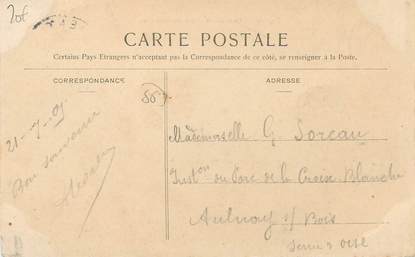 20€
CARTE POSTALE
Certains Pays Etrangers n'acceptent pas la Correspondance de ce côté, se renseigner à la Poste.
CORRESPONDANCE
ADRESSE
21-7-05
Bon souvenir
Mademoiselle G. Sorcau
du Parc de la Croix Blanche
Aulnay s/ Bois
Seine & Oise